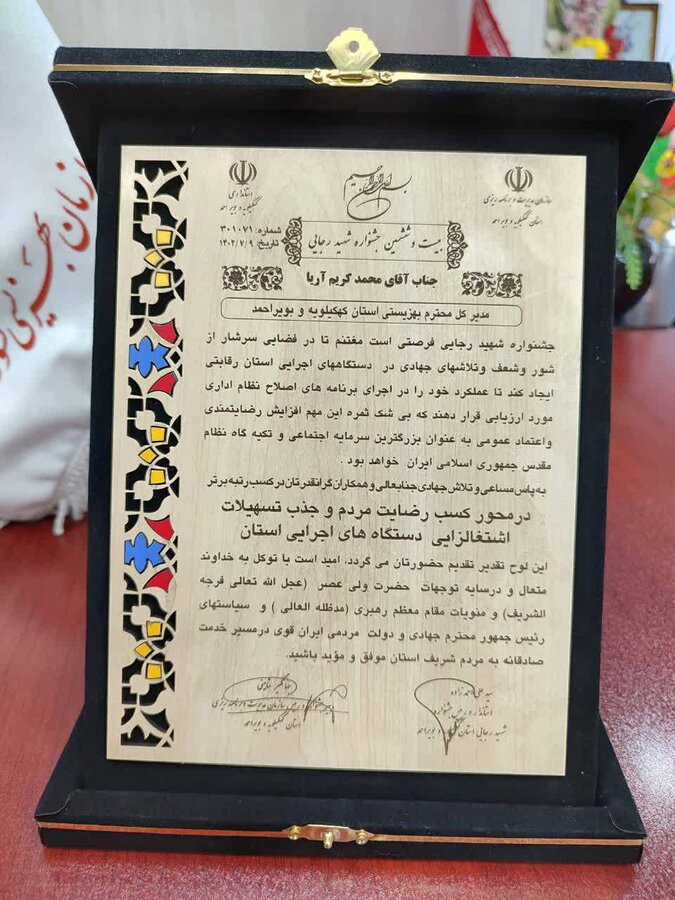 بسم الله الرحمن الرحیم
سازمان مدیریت و برنامه ریزی
استان کهگیلویه و بویراحمد
استانداری
کهگیلویه و بویراحمد
بیست و ششمین جشنواره شهید رجایی
شماره: ۳۰۱۰۷۱
تاریخ: ۱۴۰۲/۷/۹
جناب آقای محمد کریم آریا
مدیر کل محترم بهزیستی استان کهکیلویه و بویراحمد
جشنواره شهید رجایی فرصتی است مغتنم تا در فضایی سرشار از
شور وشعف وتلاشهای جهادی در دستگاههای اجرایی استان رقابتی
ایجاد کند تا عملکرد خود را در اجرای برنامه های اصلاح نظام اداری
مورد ارزیابی قرار دهند که بی شک ثمره این مهم افزایش رضایتمندی
واعتماد عمومی به عنوان بزرگترین سرمایه اجتماعی و تکیه گاه نظام
مقدس جمهوری اسلامی ایران خواهد بود .
به پاس مساعی و تلاش جهادی جنابعالی و همکاران گرانقدرتان در کسب رتبه برتر
درمحور کسب رضایت مردم و جذب تسهیلات
اشتغالزایی دستگاه های اجرایی استان
این لوح تقدیر تقدیم حضورتان می گردد، امید است با توکل به خداوند
متعال و درسایه توجهات حضرت ولی عصر (عجل الله تعالی فرجه
الشریف) و منویات مقام معظم رهبری (مدظله العالی ) و سیاستهای
رئیس جمهور محترم جهادی و دولت مردمی ایران قوی درمسیر خدمت
صادقانه به مردم شریف استان موفق و مؤید باشید.
سید علی احمدزاده
استاندار و رییس جشنواره
شهید رجایی استان کهگیلویه و بویراحمد
رییس سازمان مدیریت و برنامه ریزی
استان کهگیلویه و بویراحمد